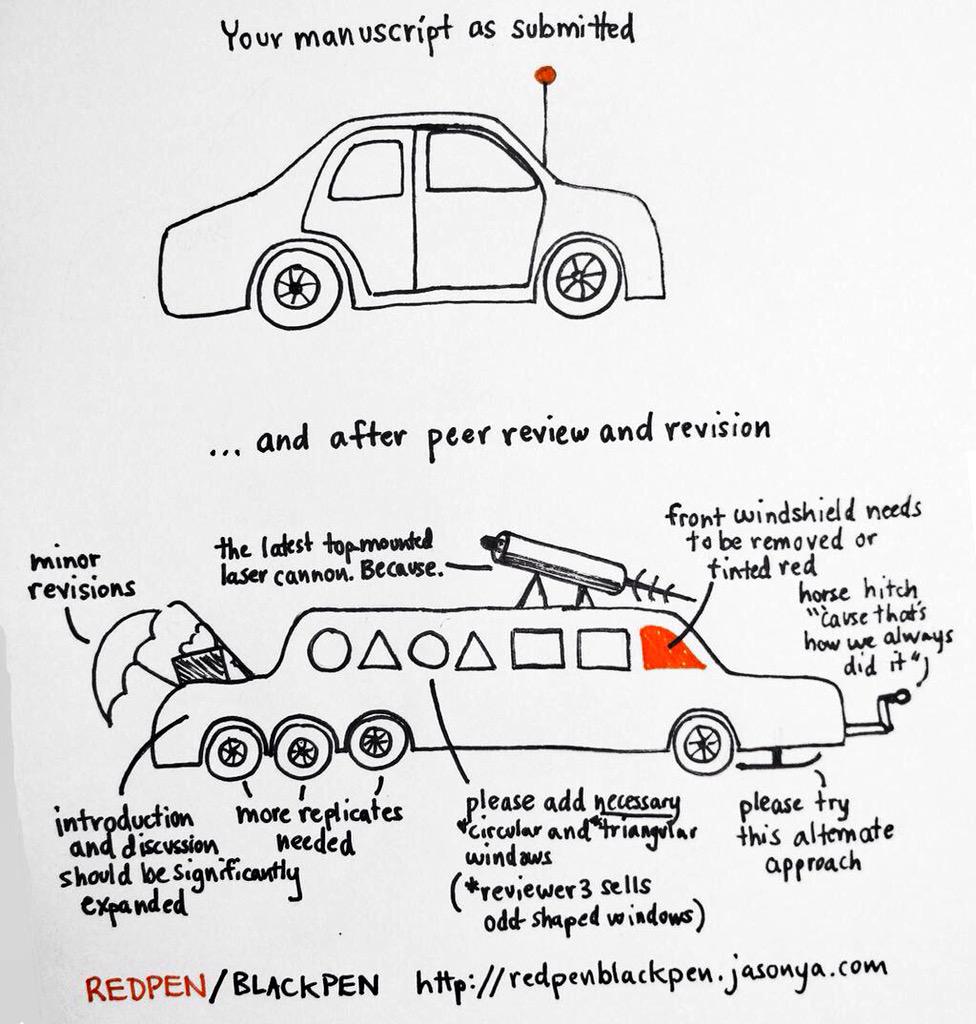 Your manuscript as submitted
... and after peer review and revision
minor
revisions
the latest top-mounted
laser cannon. Because.
front windshield needs
to be removed or
tinted red
horse hitch
"'cause that's
how we always
did it"
introduction
and discussion
should be significantly
expanded
more replicates
needed
please add necessary
*circular and *triangular
windows
(*reviewer 3 sells
odd-shaped windows)
please try
this alternate
approach
REDPEN/BLACKPEN http://redpenblackpen.jasonya.com